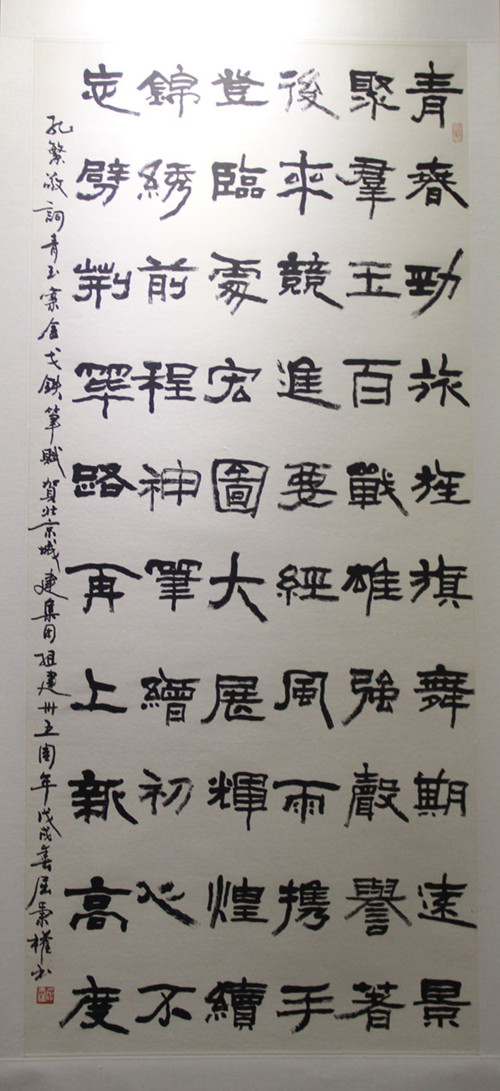 青春勁旅旌旗舞期遠景
聚羣玉百戰雄強聲譽著
後來競進要經風雨携手
登臨處宏圖大展輝煌續
錦綉前程神筆繪初心不
忘劈荆篳路再上新高度
孔繁敬詞青玉案金戈鉄筆賦賀北京城建集团組建卅五周年戊戌春屈秉權书